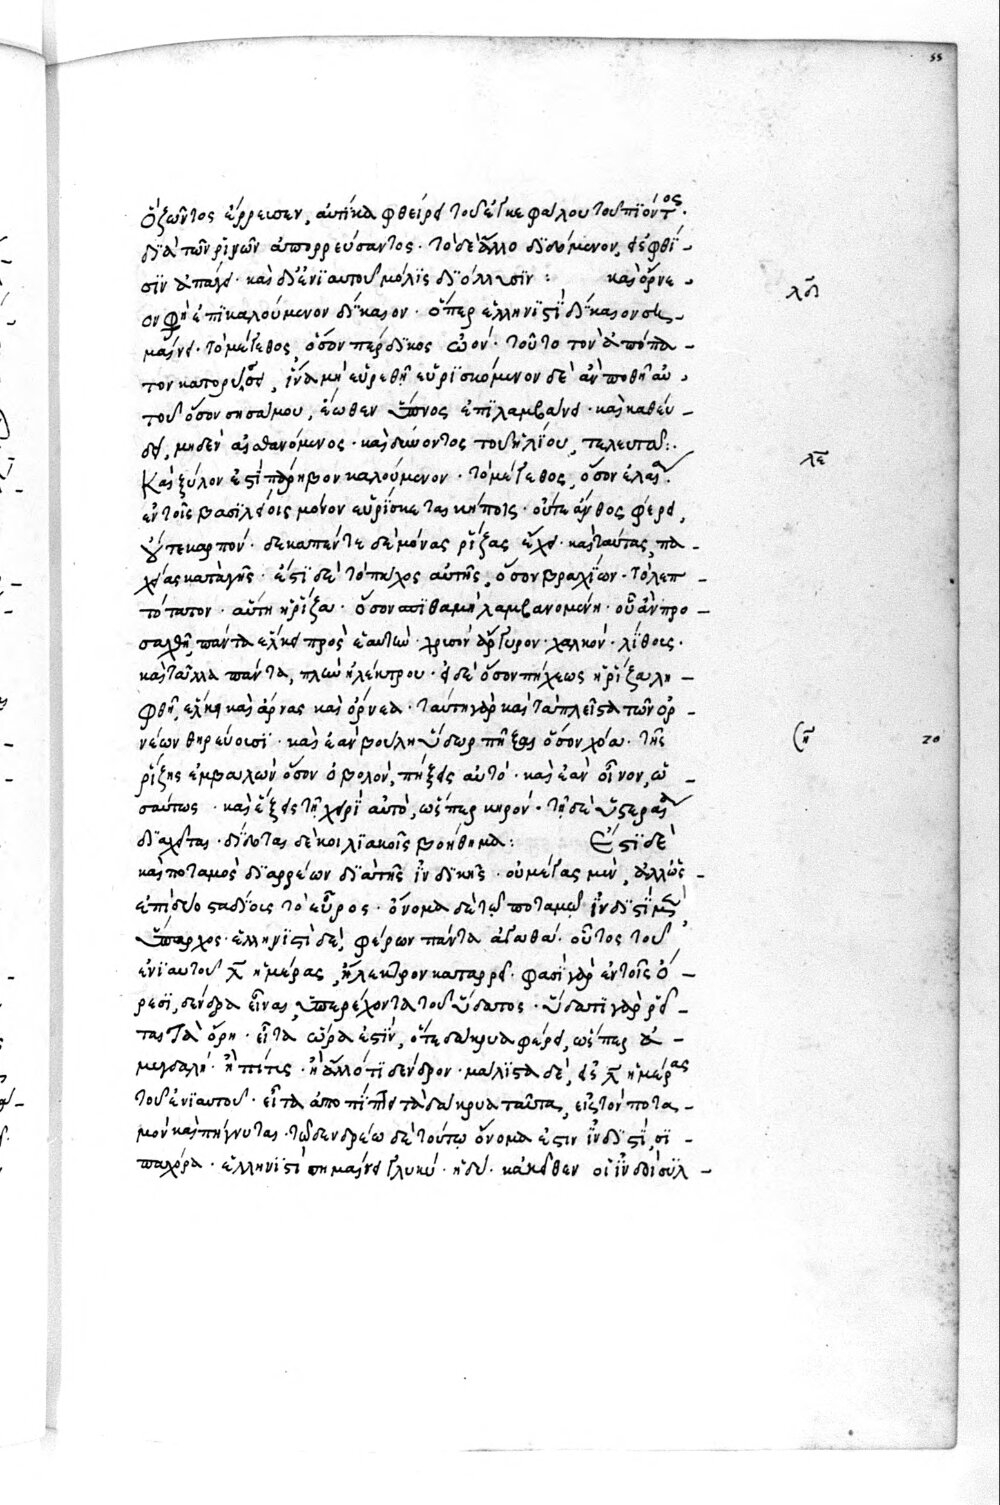 55
ὄζωντος ἔρρευσεν, αὐτίκα φθείρει τοῦ ἐγκεφάλου τοῦ πϊόντος ·
δϊὰ τῶν ῥϊνῶν ἀπορρεύσαντος · τὸ δὲ ἄλλο δϊδόμενον, φθί-
σϊν ἐπάγει · καὶ δι ἐνϊαυτοῦ μόλϊς δϊόλλυσϊν : καὶ ὄρνε-
ον φησὶ ἐπϊκαλούμενον δίκαιρον · ὅπερ ἑλληνϊστὶ δίκαιον ση-
μαίνει · τὸ μέγεθος, ὅσον πέρδϊκος ὠόν · τοῦτο τὸν ἀπόπα-
τον κατορύσσει, ἵνα μὴ εὑρεθῇ εὑρϊσκόμενον δὲ ἂν ποθῇ αὐ-
τοῦ ὅσον σησάμου, ἕωθεν ὕπνος ἐπϊλαμβάνει · καὶ καθεύ-
δει, μηδὲν αἰσθανόμενος · καὶ δύοντος τοῦ ἡλίου, τελευτᾶ :
λδ
Καὶ ξύλον ἐστὶ πάρηβον καλούμενον · τὸ μέγεθος, ὅσον ἐλαία
λε
ἐν τοῖς βασϊλείοις μόνον εὑρίσκεται κήποις · οὔτε ἄνθος φέρει,
οὔτε καρπόν · δεκαπέντε δὲ μόνας ῥίζας ἔχει · καὶ ταύτας, πα-
χείας κατὰ γῆς · ἔστϊ δὲ τὸ πάχος αὐτῆς, ὅσον βραχίων · τὸ λεπ-
τότατον · αὕτη ἡ ῥίζα · ὅσον σπϊθαμὴ λαμβανομένη · οὗ ἂν προ-
σαχθῇ, πάντα ἕλκει πρὸς ἑαυτὴν · χρυσὸν ἄργυρον · χαλκόν · λίθους ·
καὶ τἆλλα πάντα, πλὴν ἠλέκτρου · εἰ δὲ ὅσον πήχεως ἡ ῥίζα λη-
φθῇ, ἕλκει καὶ ἄρνας καὶ ὄρνεα · ταύτῃ γὰρ καὶ τὰ πλεῖστα τῶν ὀρ-
νέων θηρεύουσϊ · καὶ ἐὰν βούλῃ ὕδωρ πῆξαι ὅσον χόα · τῆς
ῥίζης ἐμβαλὼν ὅσον ὀβολὸν, πήξεις αὐτό · καὶ ἐὰν οἶνον, ὡ-
20
σαύτως · καὶ ἕξεις τῇ χειρὶ αὐτὸ, ὥσπερ κηρόν · τῇ δὲ ὑστεραία
δϊαχεῖται · δίδοται δὲ κοιλϊακοῖς βοήθημα : Ἔστϊ δὲ
καὶ ποταμὸς δϊαρρέων δϊὰ τῆς ἰνδϊκῆς · οὐ μέγας μὲν, ἀλλ ὡς
ἐπὶ δύο σταδίοις τὸ εὖρος · ὄνομα δὲ τῷ ποταμῷ ἰνδϊστὶ μὲν
ὕπαρχος · ἑλληνϊστὶ δὲ, φέρων πάντα ἀγαθά · οὗτος τοῦ
ἐνϊαυτοῦ λ ἡμέρας, ἤλεκτρον καταρρεῖ · φασὶ γὰρ ἐν τοῖς ὄ-
ρεσϊ, δένδρα εἶναι, ὑπερέχοντα τοῦ ὕδατος · ὕδατϊ γὰρ ῥεῖ-
ται τὰ ὄρη · εἶτα ὥρα ἐστὶν, ὅτε δάκρυα φέρει, ὥσπερ ἀ-
μυγδαλῆ · ἢ πίτυς · ἢ ἄλλό τϊ δένδρον · μάλϊστα δὲ, εἰς λ ἡμέρας
τοῦ ἐνϊαυτοῦ · εἶτα ἀποπίπτει τὰ δάκρυα ταῦτα, εἰς τὸν ποτα-
μὸν καὶ πήγνυται · τῷ δενδρέῳ δὲ τούτῳ ὄνομα ἐστιν ἰνδϊστὶ, σϊ-
παχόρα · ἑλληνϊστὶ σημαίνει γλυκύ · ἡδύ · κἀκεῖθεν οἱ ἰνδοὶ συλ-